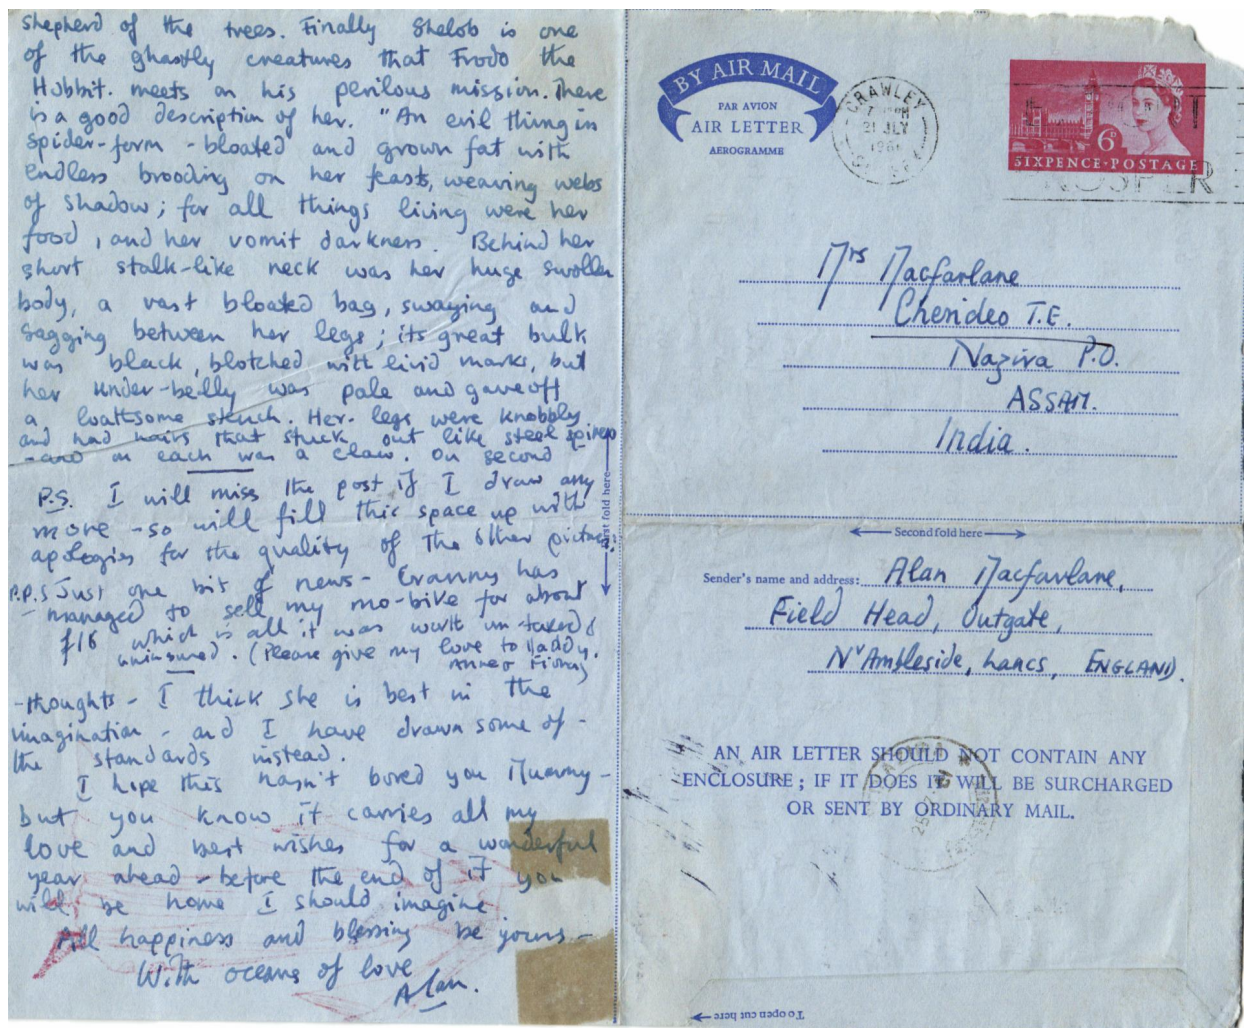 shepherd of the trees. Finally Shelob is one
of the ghastly creatures that Frodo the
Hobbit. meets on his perilous mission. There
is a good description of her. "An evil thing in
spider-form - bloated and grown fat with
endless brooding on her feasts, weaving webs
of shadow; for all things living were her
food, and her vomit darkness. Behind her
short stalk-like neck was her huge swollen
body, a vast bloated bag, swaying and
sagging between her legs; its great bulk
was black, blotched with livid marks, but
her under-belly was pale and gave off
a loathsome stench. Her legs were knobbly
and had hairs that stuck out like steel spines
- and on each was a claw. On second
P.S. I will miss the post if I draw any
more - so will fill this space up with
apologies for the quality of the other pictures.
P.P.S Just one bit of news - Granny has
managed to sell my mo-bike for about
£16 which is all it was worth un-taxed &
uninsured. (Please give my love to Daddy,
Anne & Fiona)
- thoughts - I think she is best in the
imagination - and I have drawn some of -
the standards instead.
I hope this hasn't bored you Mummy -
but you know it carries all my
love and best wishes for a wonderful
year ahead - before the end of it you
will be home I should imagine.
All happiness and blessing be yours -
With oceans of love
Alan.
First fold here
BY AIR MAIL
PAR AVION
AIR LETTER
AEROGRAMME
CRAWLEY
21 JLY
6D
SIXPENCE·POSTAGE
PROSPER
Mrs Macfarlane
Cherideo T.E.
Nazira P.O.
ASSAM.
India.
Second fold here
Sender's name and address: Alan Macfarlane,
Field Head, Outgate,
Nr Ambleside, Lancs, ENGLAND.
AN AIR LETTER SHOULD NOT CONTAIN ANY
ENCLOSURE; IF IT DOES IT WILL BE SURCHARGED
OR SENT BY ORDINARY MAIL.
To open cut here